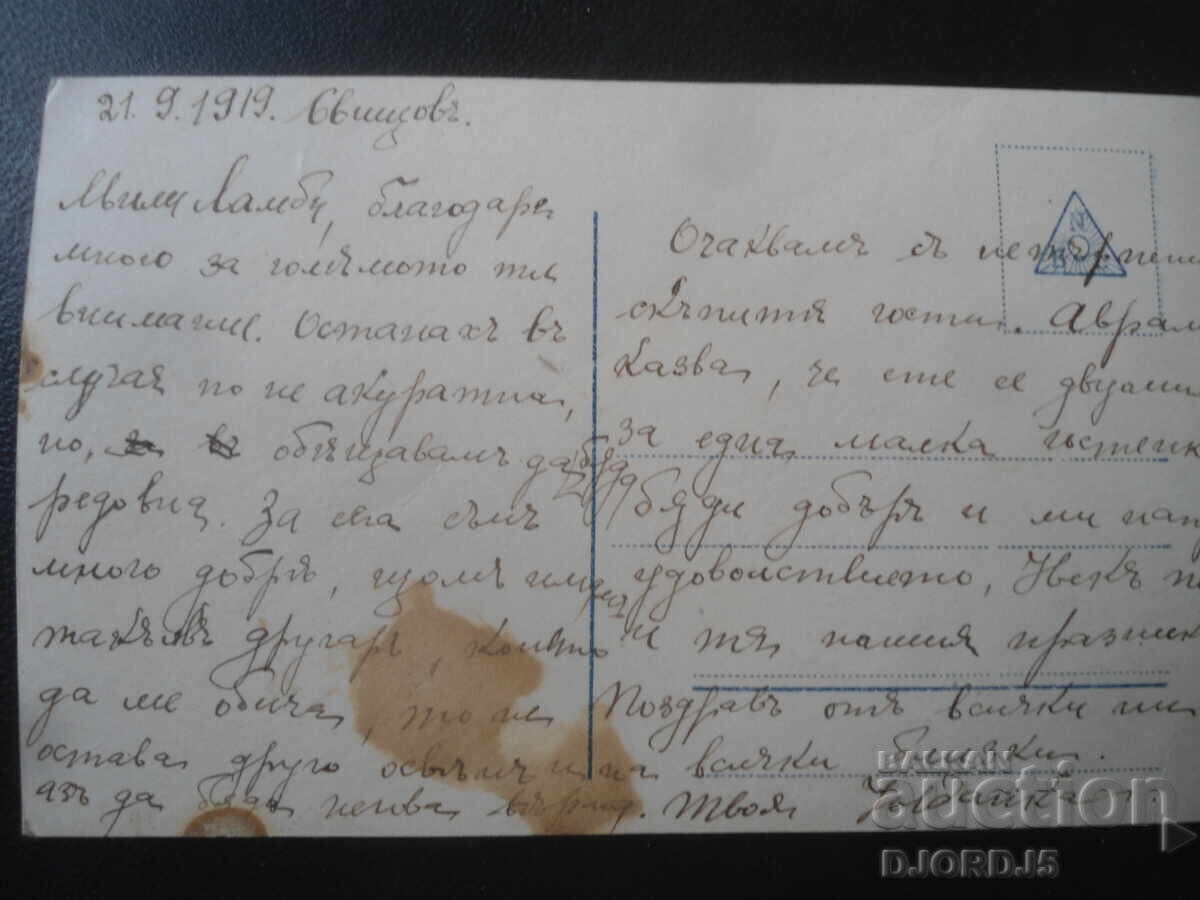 21.9.1919. Свищовъ.
Мили Ламби, благодаря
много за голѣмото ти
внимание. Останахъ въ
случая по не акуратна,
но, обѣщавамъ да бѫда
редовна. За сега съмъ
много добрѣ, щомъ имамъ
такъвъ другаръ, който
да ме обича, то не
остава друго освѣнъ и
азъ да бѫда нему вѣрна.
Очаквамъ съ нетърпени
скѫпитѣ гости. Аврам
казва, че сте се двуоми
за една малка гостенк
Бѫди добъръ и ми нап
удоволствието, Нека
и тя нашия празник
Поздравъ отъ всички ни
на всички ви.
Твоя
N
BALKAN
auction
DJORDJ5